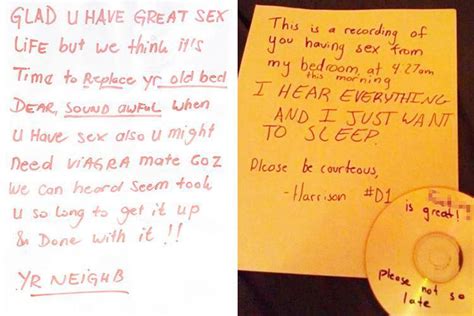 GLAD U HAVE GREAT SEX
LIFE but we think it's
Time to Replace yr old bed
DEAR, SOUND AWFUL when
u Have sex also u might
need VIAGRA mate COZ
We can heard seem took
u so long to get it up
& Done with it !!
YR NEIGHB
This is a recording of
you having sex from
my bedroom, at 4:27am
this morning
I HEAR EVERYTHING
AND I JUST WANT
TO SLEEP.
Please be courteous,
-Harrison #D1
is great!
please not so
late